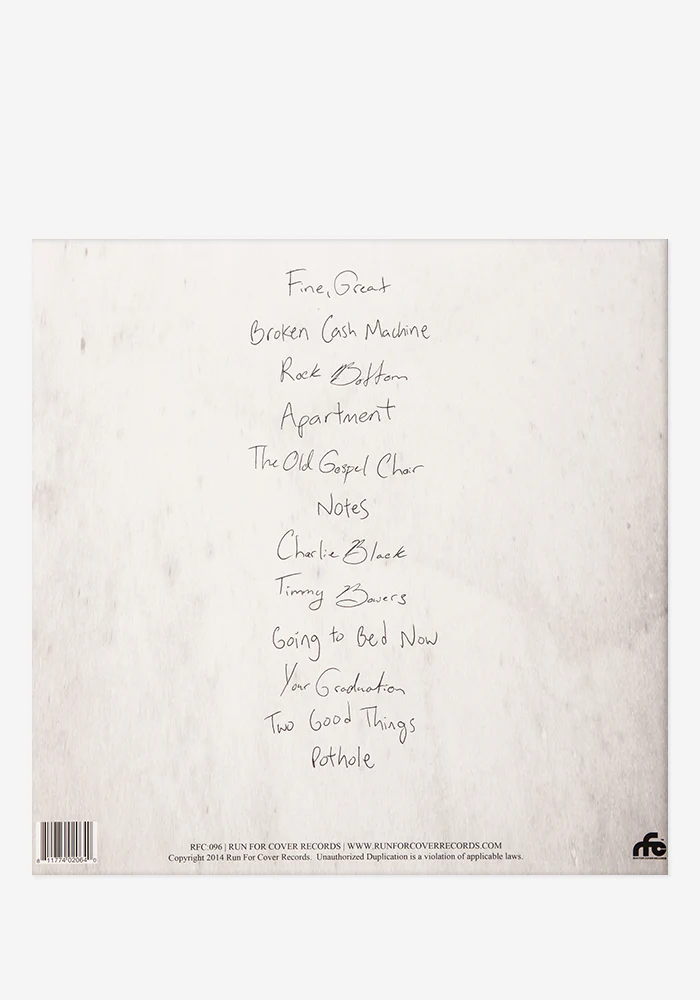 Fine, Great
Broken Cash Machine
Rock Bottom
Apartment
The Old Gospel Choir
Notes
Charlie Black
Timmy Bowers
Going to Bed Now
Your Graduation
Two Good Things
Pothole
RFC:096 | RUN FOR COVER RECORDS | WWW.RUNFORCOVERRECORDS.COM
Copyright 2014 Run For Cover Records. Unauthorized Duplication is a violation of applicable laws.
8 11774 02064 0
rfc
RUN FOR COVER RECORDS